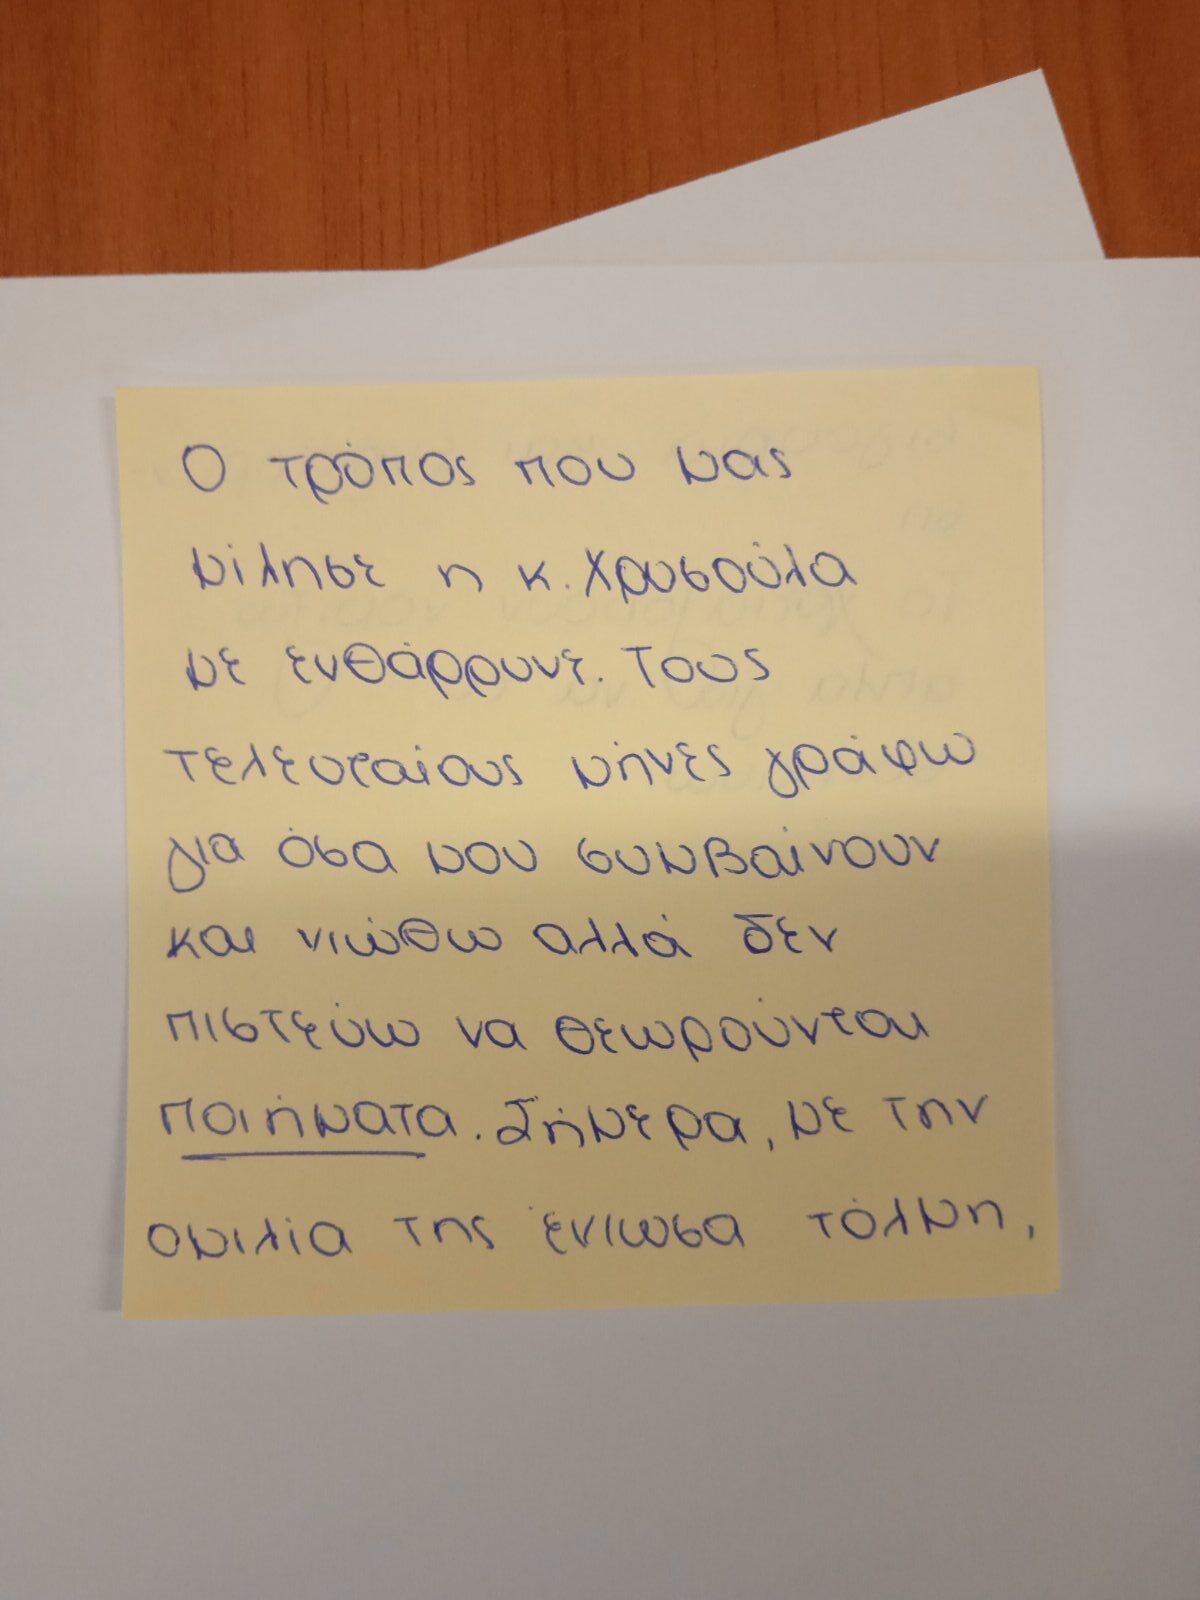 Ο τρόπος που μας
μίλησε η κ. Χρυσούλα
με ενθάρρυνε. Τους
τελευταίους μήνες γράφω
για όσα μου συμβαίνουν
και νιώθω αλλά δεν
πιστεύω να θεωρούνται
ποιήματα. Σήμερα, με την
ομιλία της ένιωσα τόλμη,